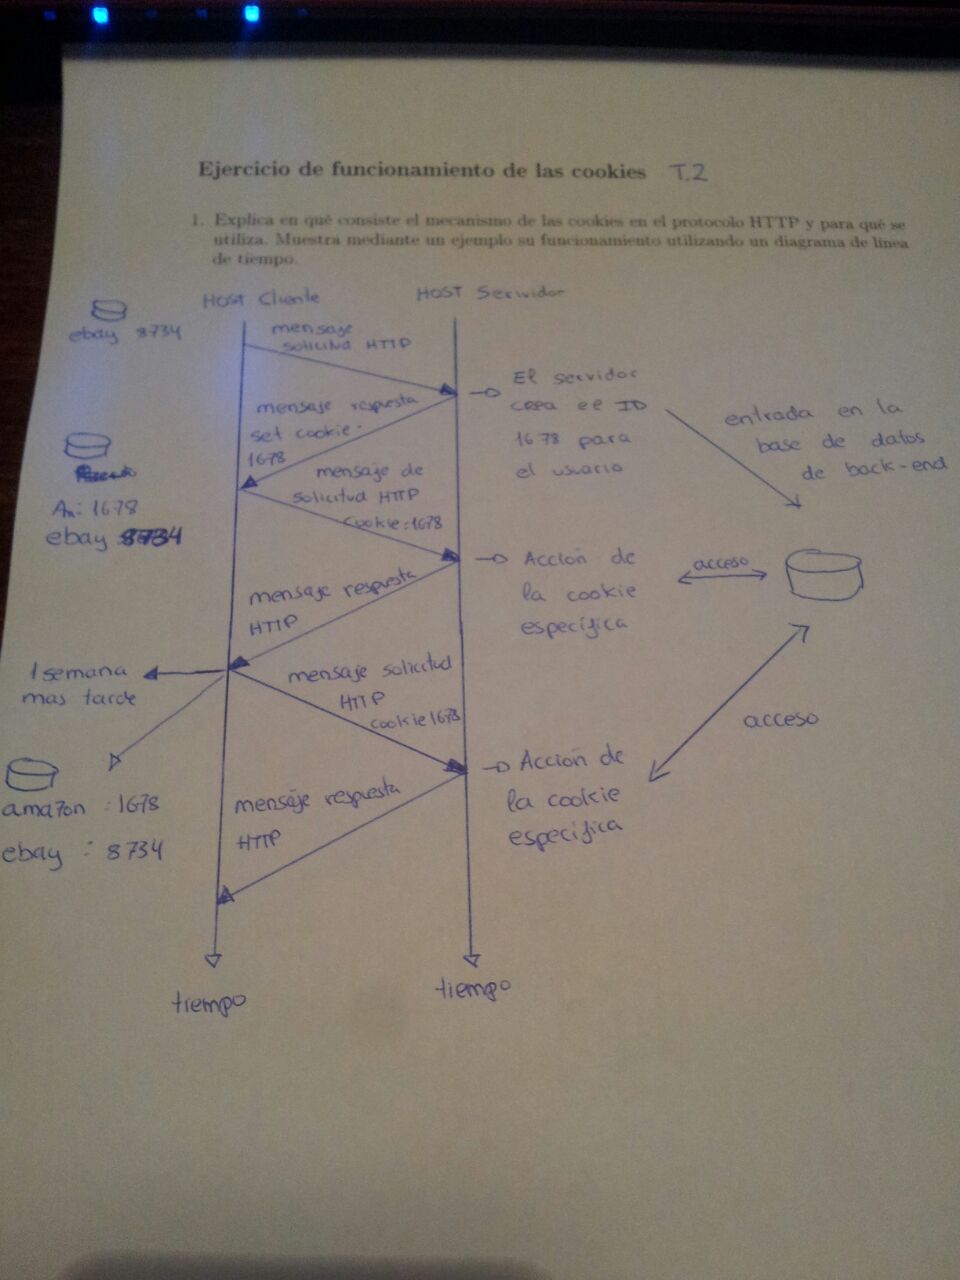 Ejercicio de funcionamiento de las cookies T.2
1. Explica en qué consiste el mecanismo de las cookies en el protocolo HTTP y para qué se
utiliza. Muestra mediante un ejemplo su funcionamiento utilizando un diagrama de línea
de tiempo.
HOST Cliente
HOST Servidor
ebay 8734
mensaje
solicitud HTTP
El servidor
crea el ID
1678 para
el usuario
entrada en la
base de datos
de back-end
mensaje respuesta
set cookie:
1678
Am: 1678
ebay 8734
mensaje de
solicitud HTTP
Cookie:1678
Acción de
la cookie
específica
acceso
mensaje respuesta
HTTP
1 semana
mas tarde
mensaje solicitud
HTTP
cookie 1678
acceso
Acción de
la cookie
específica
amazon : 1678
ebay : 8734
mensaje respuesta
HTTP
tiempo
tiempo